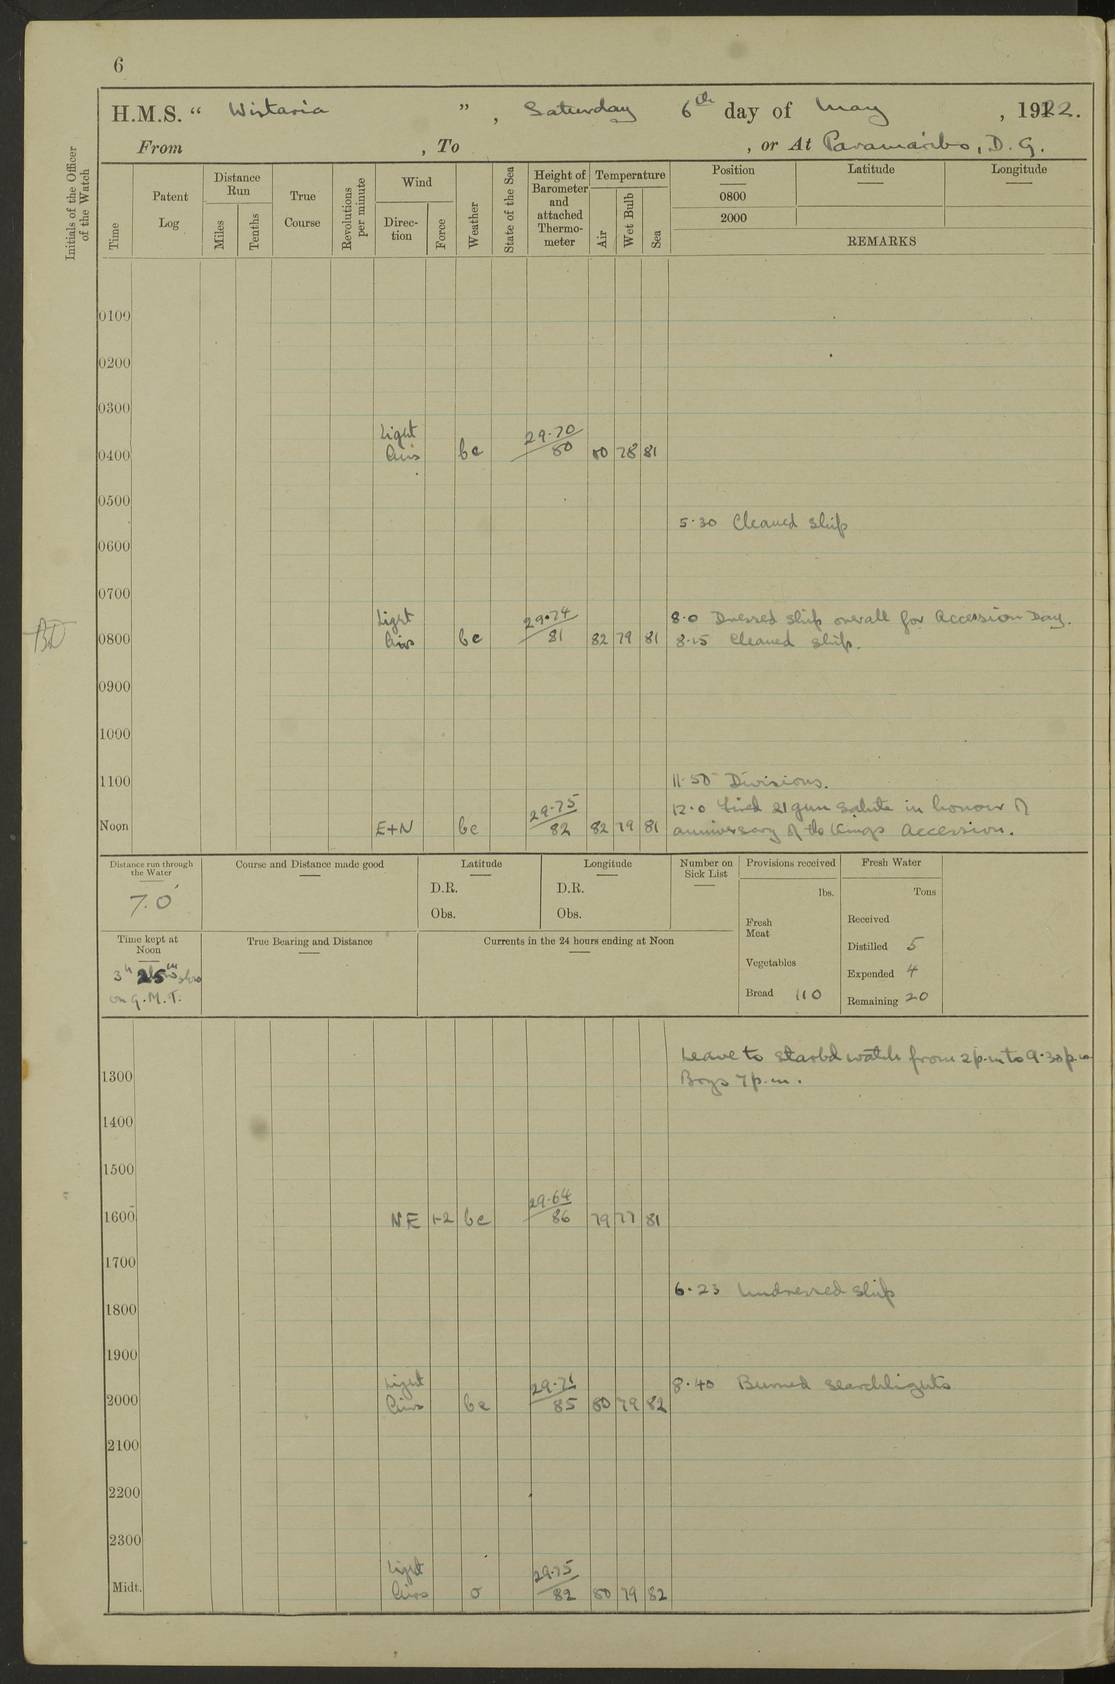 6
H.M.S. “ Wistaria ”, Saturday 6th day of May, 1922.
From , To , or At Paramaribo, D. G.
Initials of the Officer of the Watch
Time
Patent Log
Distance Run
Miles
Tenths
True Course
Revolutions per minute
Wind
Direction
Force
Weather
State of the Sea
Height of Barometer and attached Thermometer
Temperature
Air
Wet Bulb
Sea
Position Latitude Longitude
0800
2000
REMARKS
0100
0200
0300
0400 Light Airs bc 29.70 80 80 78 81
0500
5.30 Cleaned ship
0600
0700
8.0 Dressed ship overall for Accession Day.
0800 Light Airs bc 29.74 81 82 79 81 8.15 Cleaned ship.
0900
1000
1100 11.50 Divisions.
12.0 Fired 21 gun salute in honour of
Noon E+N bc 29.75 82 82 79 81 anniversary of the Kings Accession.
Distance run through the Water
7.0
Course and Distance made good
Latitude
D.R.
Obs.
Longitude
D.R.
Obs.
Number on Sick List
Provisions received
lbs.
Fresh Meat
Vegetables
Bread 110
Fresh Water
Tons
Received
Distilled 5
Expended 4
Remaining 20
Time kept at Noon
3h 25m slow
on G.M.T.
True Bearing and Distance
Currents in the 24 hours ending at Noon
Leave to starbd watch from 2 p.m to 9.30 p.m
1300 Boys 7 p.m.
1400
1500
1600 NE 1-2 bc 29.64 86 79 77 81
1700
6.23 Undressed ship
1800
1900
8.40 Burned searchlights
2000 Light Airs bc 29.71 85 80 79 82
2100
2200
2300
Midt. Light Airs o 29.75 82 80 79 82